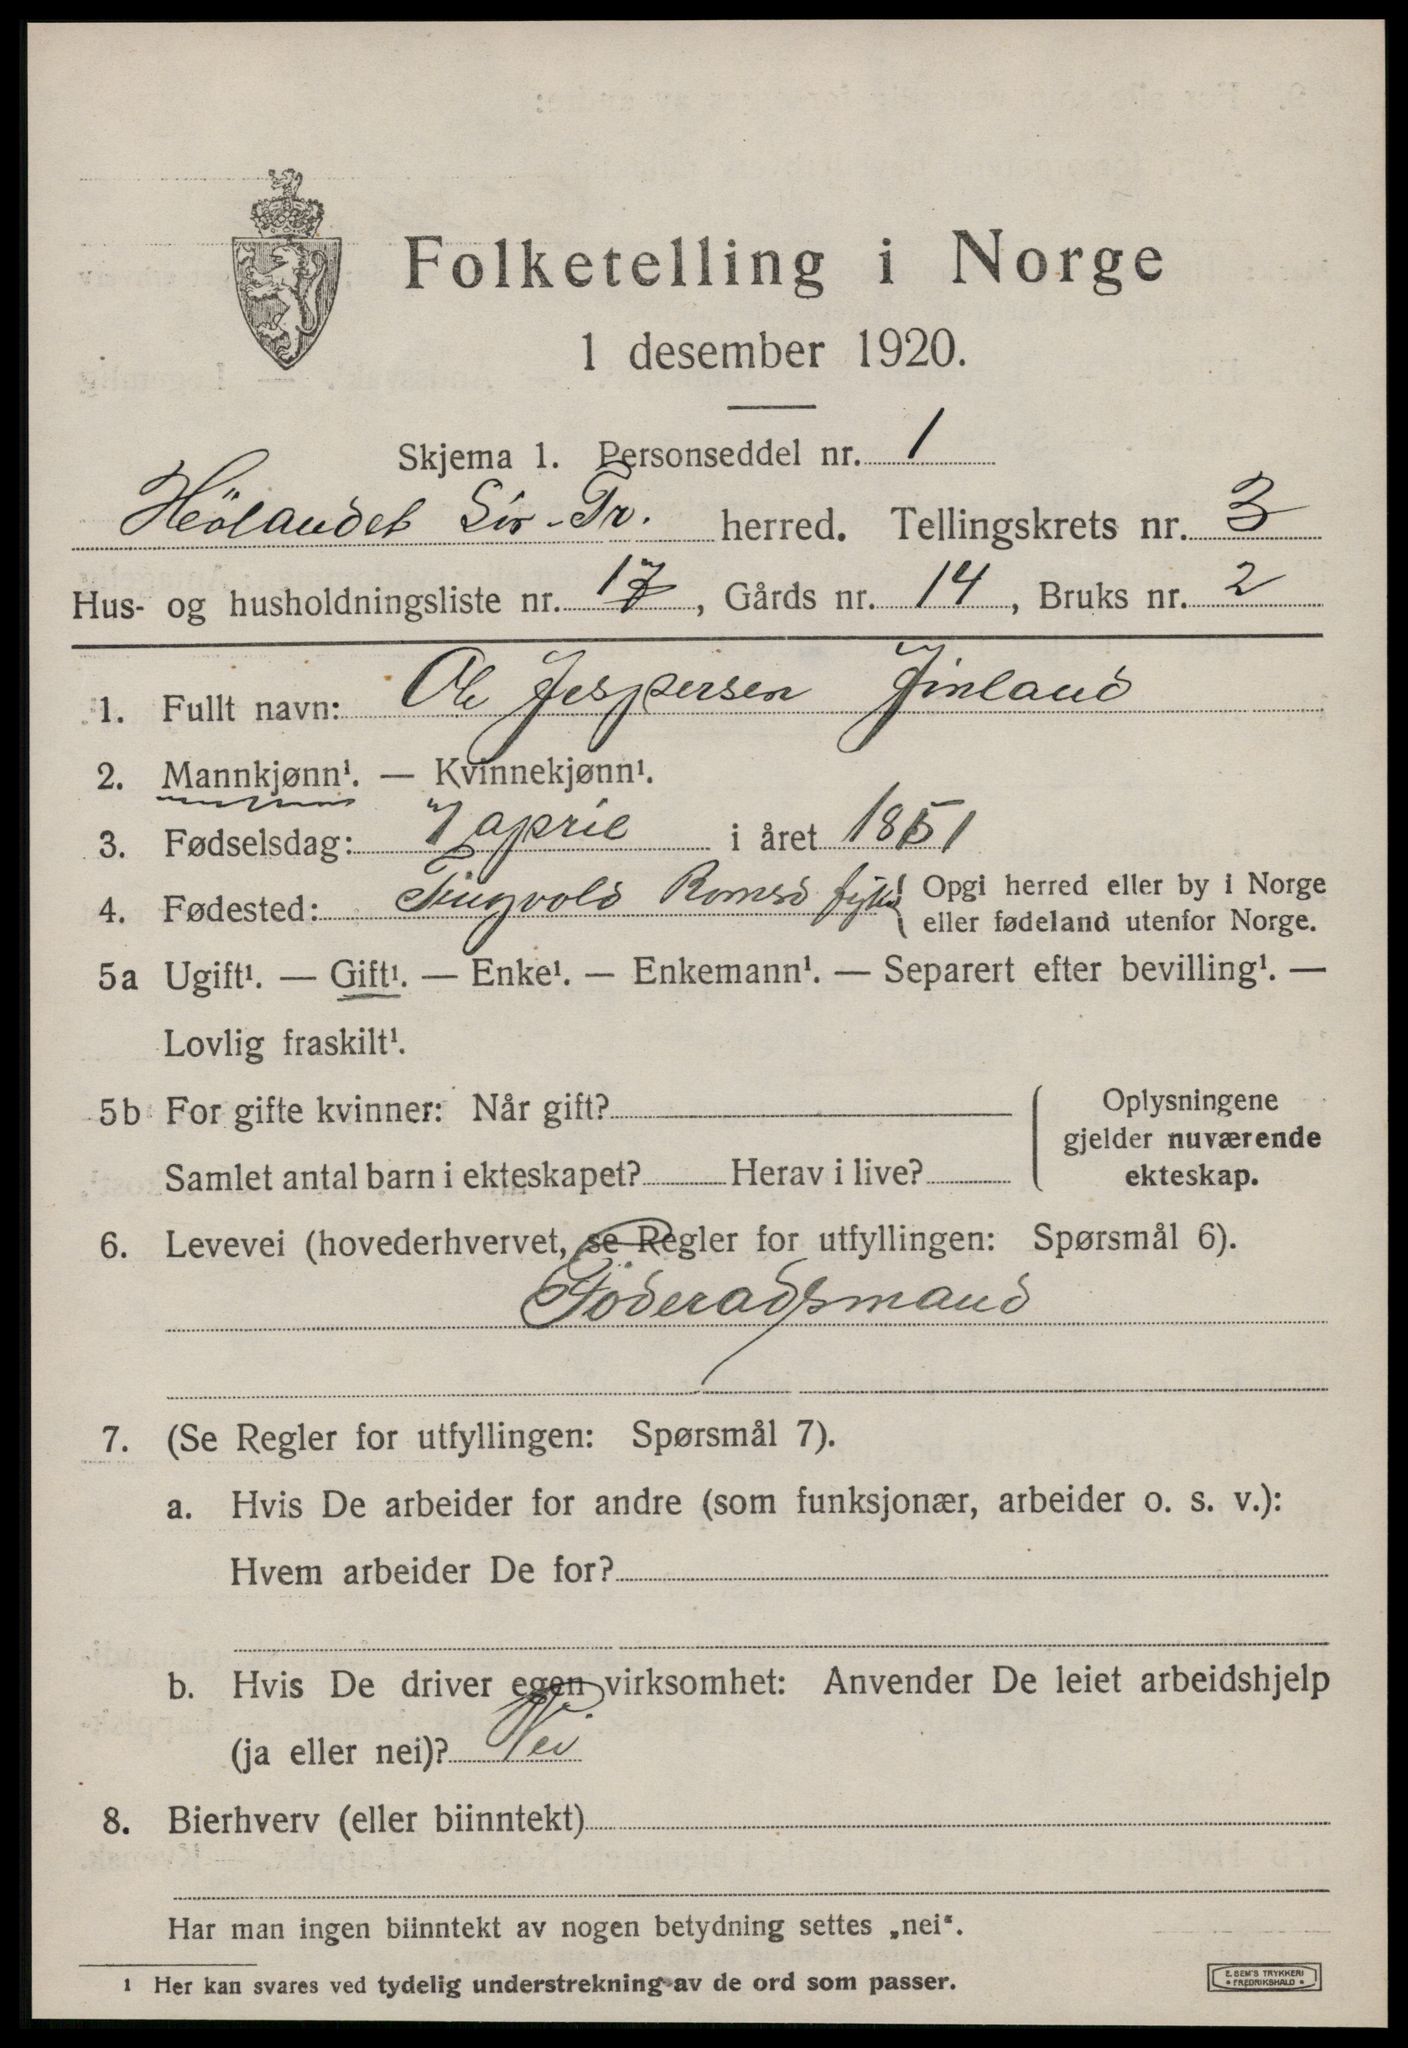 Folketelling i Norge
1 desember 1920.
Skjema 1. Personseddel nr. 1
Hölandet Sör-Tr. herred. Tellingskrets nr. 3
Hus- og husholdningsliste nr. 17, Gårds nr. 14, Bruks nr. 2
1. Fullt navn: Ole Jespersen
2. Mannkjønn¹. — Kvinnekjønn¹.
3. Fødselsdag: 7 april i året 1851
4. Fødested: Tingvold Romsd fylke { Opgi herred eller by i Norge
eller fødeland utenfor Norge.
5a Ugift¹. — Gift¹. — Enke¹. — Enkemann¹. — Separert efter bevilling¹. —
Lovlig fraskilt¹.
5b For gifte kvinner: Når gift?
Samlet antal barn i ekteskapet? Herav i live?
Oplysningene
gjelder nuværende
ekteskap.
6. Levevei (hovederhvervet, se Regler for utfyllingen: Spørsmål 6).
Föderadsmand
7. (Se Regler for utfyllingen: Spørsmål 7).
a. Hvis De arbeider for andre (som funksjonær, arbeider o. s. v.):
Hvem arbeider De for?
b. Hvis De driver egen virksomhet: Anvender De leiet arbeidshjelp
(ja eller nei)? Nei
8. Bierhverv (eller biinntekt)
Har man ingen biinntekt av nogen betydning settes „nei“.
¹ Her kan svares ved tydelig understrekning av de ord som passer.
E. SEM'S TRYKKERI
• FREDRIKSHALD •